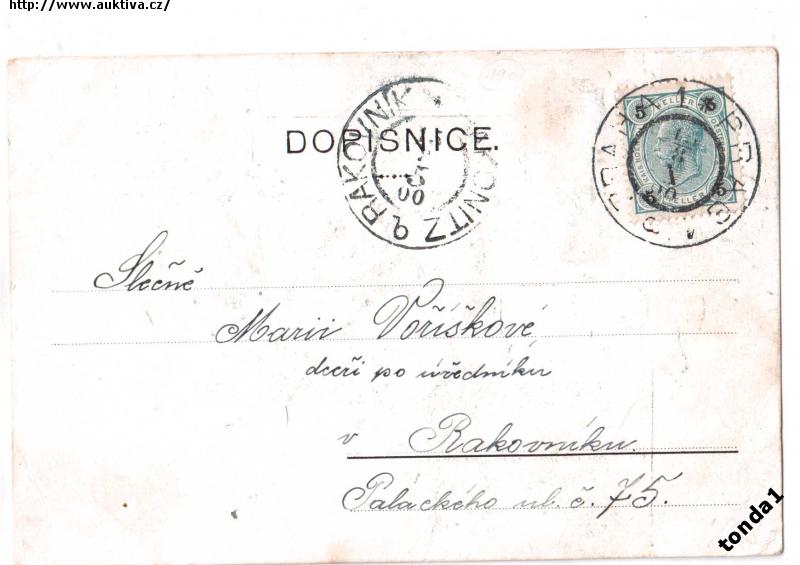 http://www.auktiva.cz/
DOPISNICE.
RAKOVNÍK
RAKONITZ
PRAHA 1 PRAG 1
5 HELLER 5
Slečně
Marii Voříškové,
dceři po úředníku
v Rakovníku.
Paláckého ul. č. 75.
tonda1